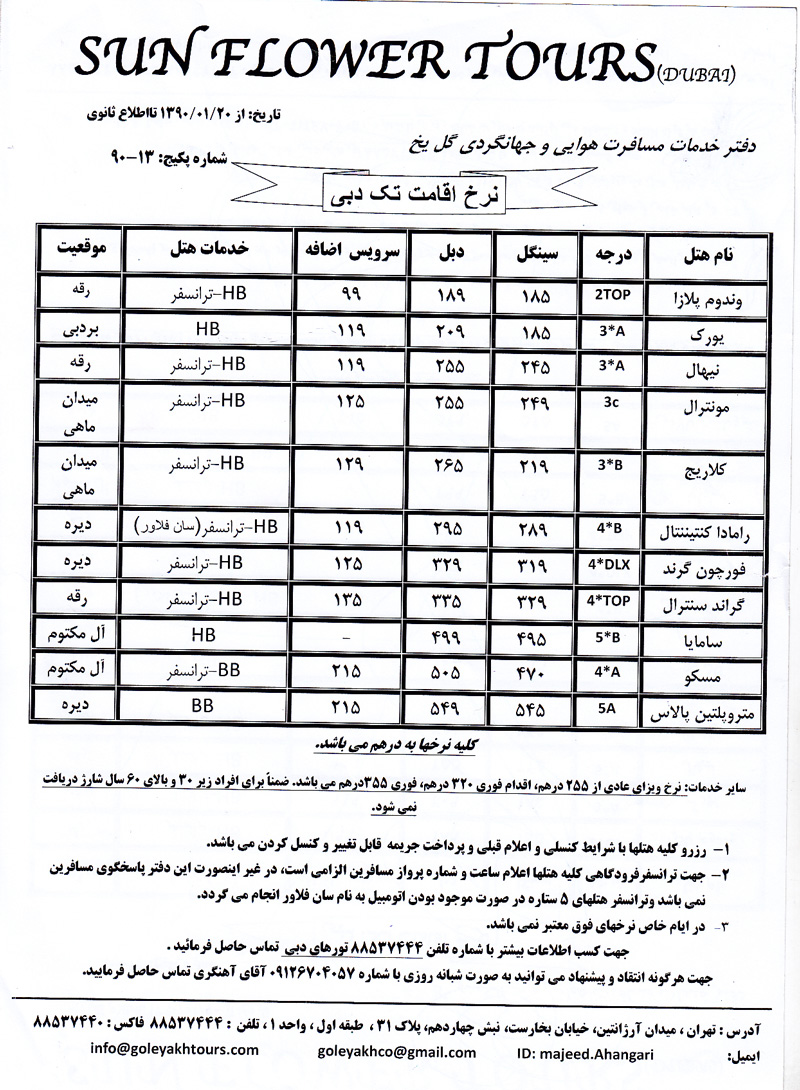 SUN FLOWER TOURS (DUBAI)
تاریخ: از ۱۳۹۰/۰۱/۲۰ تااطلاع ثانوی
دفتر خدمات مسافرت هوایی و جهانگردی گل یخ
شماره پکیج: ۱۳-۹۰
نرخ اقامت تک دبی
نام هتل درجه سینگل دبل سرویس اضافه خدمات هتل موقعیت
وندوم پلازا 2TOP ۱۸۵ ۱۸۹ ۹۹ HB-ترانسفر رقه
یورک 3*A ۱۸۵ ۲۰۹ ۱۱۹ HB بردبی
نیهال 3*A ۲۴۵ ۲۵۵ ۱۱۹ HB-ترانسفر رقه
مونترال 3c ۲۴۹ ۲۵۵ ۱۲۵ HB-ترانسفر میدان
ماهی
کلاریج 3*B ۲۱۹ ۲۶۵ ۱۲۹ HB-ترانسفر میدان
ماهی
رامادا کنتیننتال 4*B ۲۸۹ ۲۹۵ ۱۱۹ HB-ترانسفر(سان فلاور) دیره
فورچون گرند 4*DLX ۳۱۹ ۳۲۹ ۱۲۵ HB-ترانسفر دیره
گراند سنترال 4*TOP ۳۲۹ ۳۳۵ ۱۳۵ HB-ترانسفر رقه
سامایا 5*B ۴۹۵ ۴۹۹ - HB آل مکتوم
مسکو 4*A ۴۷۰ ۵۰۵ ۲۱۵ BB-ترانسفر آل مکتوم
متروپلتین پالاس 5A ۵۴۵ ۵۴۹ ۲۱۵ BB دیره
کلیه نرخها به درهم می باشد.
سایر خدمات: نرخ ویزای عادی از ۲۵۵ درهم، اقدام فوری ۳۲۰ درهم، فوری ۳۵۵درهم می باشد. ضمناً برای افراد زیر ۳۰ و بالای ۶۰ سال شارژ دریافت
نمی شود.
۱- رزرو کلیه هتلها با شرایط کنسلی و اعلام قبلی و پرداخت جریمه قابل تغییر و کنسل کردن می باشد.
۲- جهت ترانسفرفرودگاهی کلیه هتلها اعلام ساعت و شماره پرواز مسافرین الزامی است، در غیر اینصورت این دفتر پاسخگوی مسافرین
نمی باشد وترانسفر هتلهای ۵ ستاره در صورت موجود بودن اتومبیل به نام سان فلاور انجام می گردد.
۳- در ایام خاص نرخهای فوق معتبر نمی باشد.
جهت کسب اطلاعات بیشتر با شماره تلفن ۸۸۵۳۷۴۴۴ تورهای دبی تماس حاصل فرمائید .
جهت هرگونه انتقاد و پیشنهاد می توانید به صورت شبانه روزی با شماره ۰۹۱۲۶۷۰۴۰۵۷ آقای آهنگری تماس حاصل فرمایید.
آدرس : تهران ، میدان آرژانتین، خیابان بخارست، نبش چهاردهم، پلاک ۳۱ ، طبقه اول ، واحد ۱، تلفن : ۸۸۵۳۷۴۴۴ فاکس : ۸۸۵۳۷۴۴۰
ایمیل: ID: majeed.Ahangari goleyakhco@gmail.com info@goleyakhtours.com